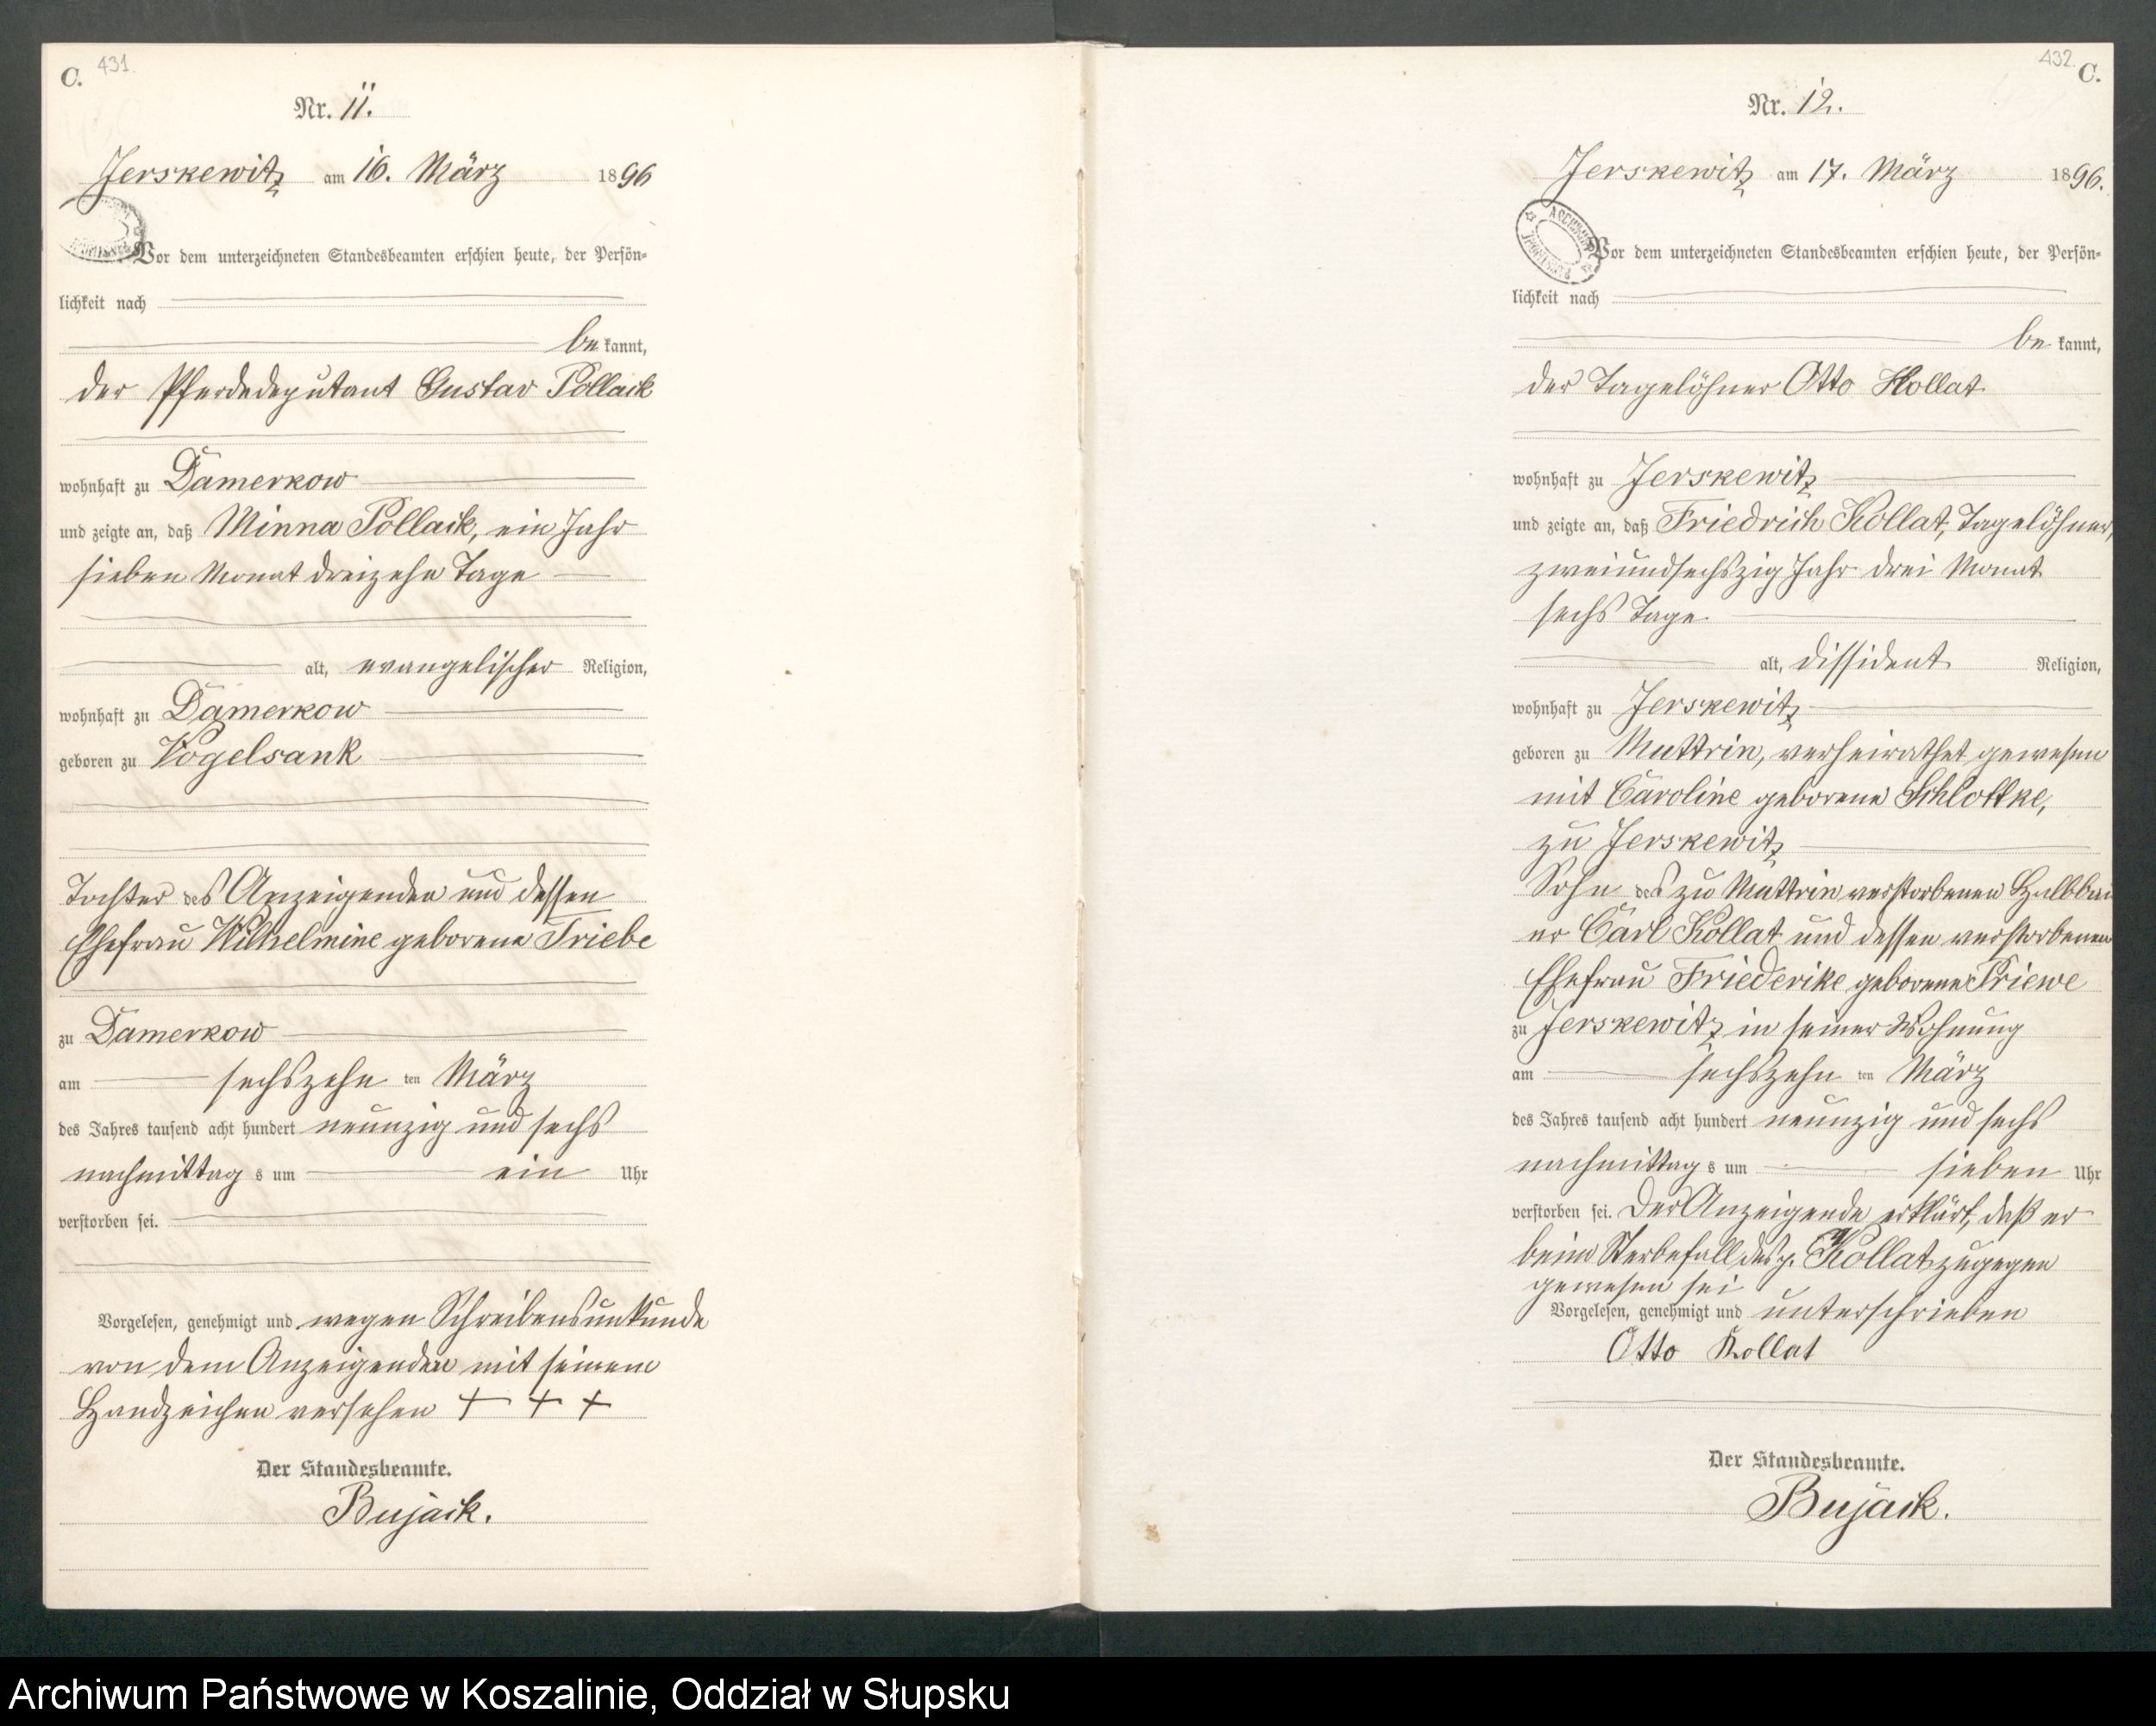 C. 431.
Nr. 11.
Jerskewitz am 16. März 1896
Vor dem unterzeichneten Standesbeamten erschien heute, der Persön-
lichkeit nach
bekannt,
der Pferdedeputant Gustav Pollack
wohnhaft zu Damerkow
und zeigte an, daß Minna Pollack, ein Jahr
sieben Monat dreizehn Tage
alt, evangelischer Religion,
wohnhaft zu Damerkow
geboren zu Vogelsank
Tochter des Anzeigenden und dessen
Ehefrau Wilhelmine geborene Friebe
zu Damerkow
am sechszehnten März
des Jahres tausend acht hundert neunzig und sechs
nachmittags um ein Uhr
verstorben sei.
Vorgelesen, genehmigt und wegen Schreibensunkunde
von dem Anzeigenden mit seinem
Handzeichen versehen + + +
Der Standesbeamte.
Bujack.
432. C.
Nr. 12.
Jerskewitz am 17. März 1896.
Vor dem unterzeichneten Standesbeamten erschien heute, der Persön-
lichkeit nach
bekannt,
der Tagelöhner Otto Kollat
wohnhaft zu Jerskewitz
und zeigte an, daß Friedrich Kollat, Tagelöhner,
zweiundsechszig Jahr drei Monat
sechs Tage
alt, dissident Religion,
wohnhaft zu Jerskewitz
geboren zu Muttrin, verheirathet gewesen
mit Caroline geborene Schlottke,
zu Jerskewitz
Sohn des zu Muttrin verstorbenen Halbbau
er Carl Kollat und dessen verstorbenen
Ehefrau Friederike geborene Priewe
zu Jerskewitz in seiner Wohnung
am sechszehnten März
des Jahres tausend acht hundert neunzig und sechs
nachmittags um sieben Uhr
verstorben sei. Der Anzeigende erklärt, daß er
beim Sterbefall des p. Kollat zugegen
gewesen sei
Vorgelesen, genehmigt und unterschrieben
Otto Kollat
Der Standesbeamte.
Bujack.
Archiwum Państwowe w Koszalinie, Oddział w Słupsku